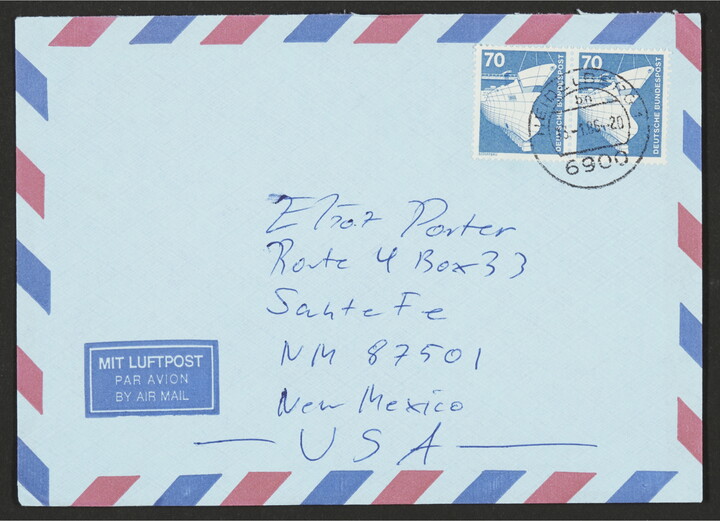 70
70
DEUTSCHE BUNDESPOST
DEUTSCHE BUNDESPOST
HEIDELBERG 1
6900
Eliot Porter
Route 4 Box 33
Santa Fe
NM 87501
New Mexico
USA
MIT LUFTPOST
PAR AVION
BY AIR MAIL